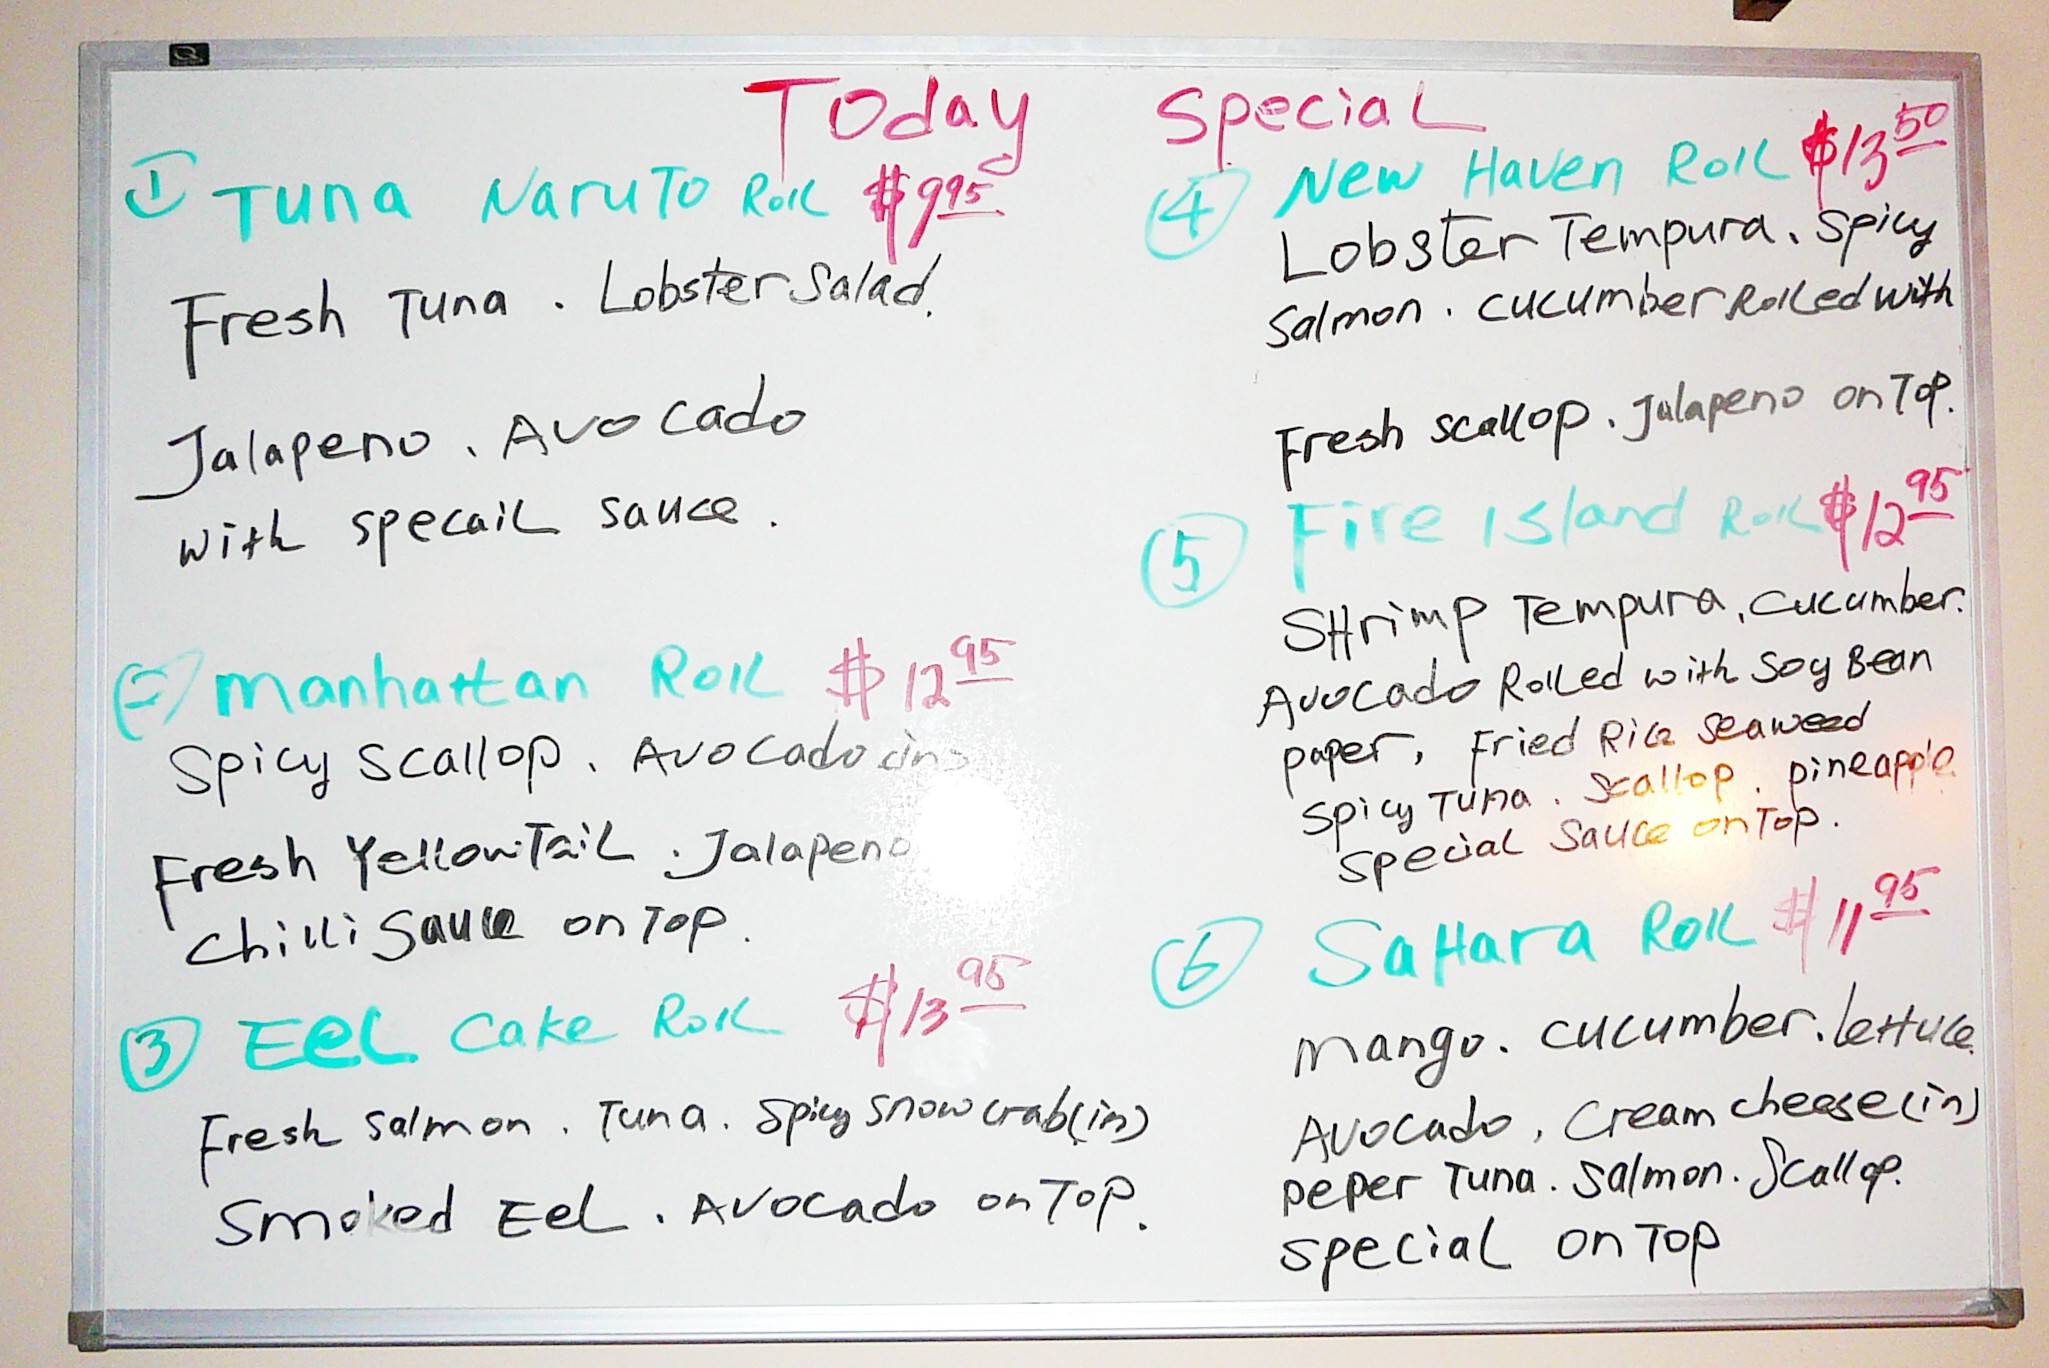 Today Special
① Tuna Naruto Roll $9.95
Fresh Tuna. Lobster Salad.
Jalapeno. Avocado
with specail sauce.
Manhattan Roll $12.95
Spicy scallop. Avocado (in)
Fresh YellowTail. Jalapeno
Chilli Sauce on Top.
③ Eel Cake Roll $13.95
Fresh Salmon. Tuna. Spicy Snow crab(in)
Smoked Eel. Avocado on Top.
④ New Haven Roll $13.50
Lobster Tempura. Spicy
Salmon. cucumber Rolled with
Fresh scallop. Jalapeno on Top.
⑤ Fire Island Roll $12.95
SHrimp Tempura, cucumber.
Avocado Rolled with Soy Bean
paper, Fried Rice Seaweed
Spicy Tuna. Scallop. pineapple
Special Sauce on Top.
⑥ SaHara Roll $11.95
mango. cucumber. lettuce
Avocado, Cream cheese(in)
peper Tuna. Salmon. Scallop.
special on Top